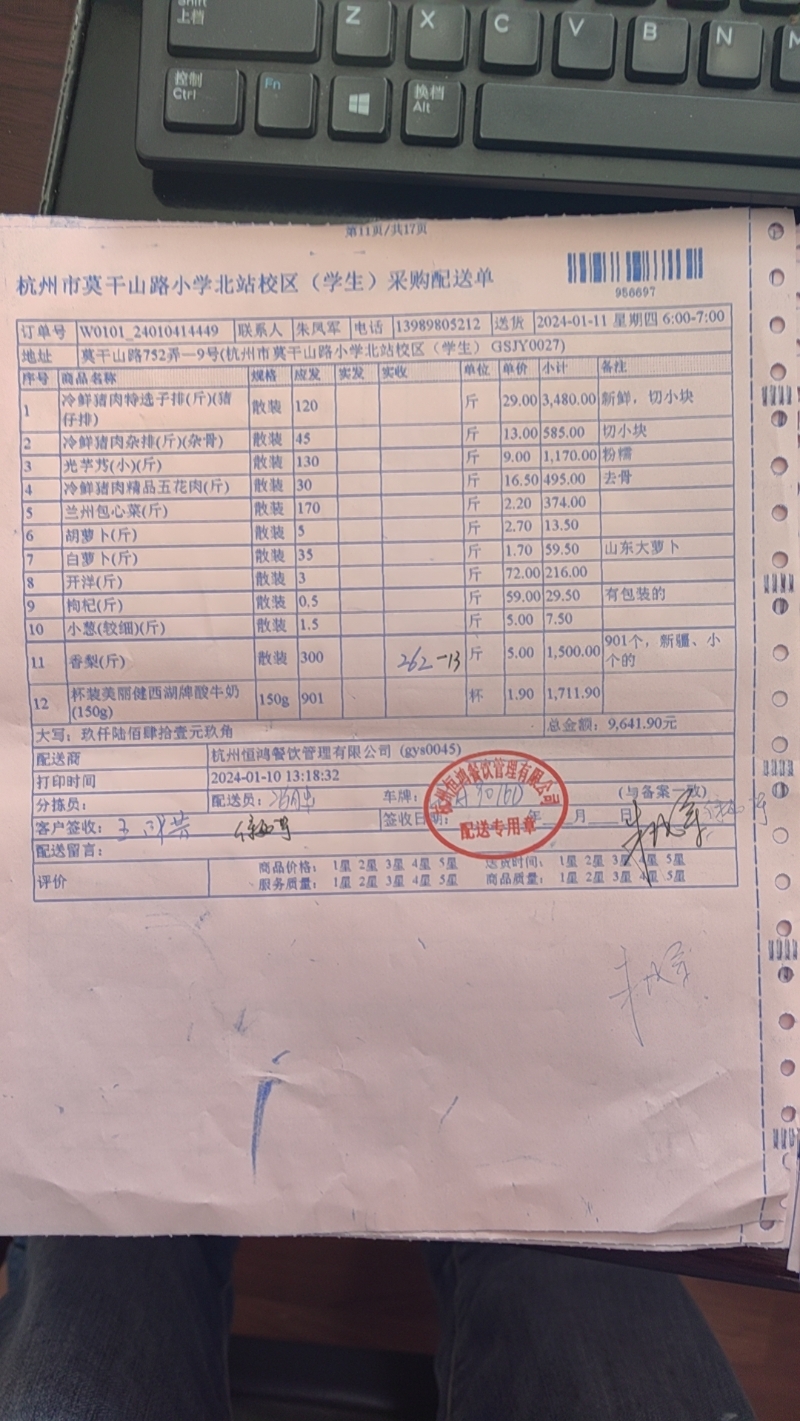 Shift
上档
Z
X
C
V
B
N
M
控制
Ctrl
Fn
换档
Alt
第11页/共17页
杭州市莫干山路小学北站校区（学生）采购配送单
956697
订单号 W0101_24010414449 联系人 朱凤军 电话 13989805212 送货 2024-01-11 星期四 6:00-7:00
地址 莫干山路752弄一9号(杭州市莫干山路小学北站校区（学生）GSJY0027)
序号 商品名称 规格 应发 实发 实收 单位 单价 小计 备注
1 冷鲜猪肉特选子排(斤)(猪仔排) 散装 120 斤 29.00 3,480.00 新鲜，切小块
2 冷鲜猪肉杂排(斤)(杂骨) 散装 45 斤 13.00 585.00 切小块
3 光芋艿(小)(斤) 散装 130 斤 9.00 1,170.00 粉糯
4 冷鲜猪肉精品五花肉(斤) 散装 30 斤 16.50 495.00 去骨
5 兰州包心菜(斤) 散装 170 斤 2.20 374.00
6 胡萝卜(斤) 散装 5 斤 2.70 13.50
7 白萝卜(斤) 散装 35 斤 1.70 59.50 山东大萝卜
8 开洋(斤) 散装 3 斤 72.00 216.00
9 枸杞(斤) 散装 0.5 斤 59.00 29.50 有包装的
10 小葱(较细)(斤) 散装 1.5 斤 5.00 7.50
11 香梨(斤) 散装 300 262-13 斤 5.00 1,500.00 901个，新疆、小个的
12 杯装美丽健西湖牌酸牛奶(150g) 150g 901 杯 1.90 1,711.90
大写：玖仟陆佰肆拾壹元玖角 总金额：9,641.90元
配送商 杭州恒鸿餐饮管理有限公司（gys0045)
打印时间 2024-01-10 13:18:32
分拣员： 配送员： 车牌： (与备案一致)
客户签收： 签收日期： 年 月 日
杭州恒鸿餐饮管理有限公司
配送专用章
配送留言：
评价 商品价格： 1星 2星 3星 4星 5星 送货时间： 1星 2星 3星 4星 5星
服务质量： 1星 2星 3星 4星 5星 商品质量： 1星 2星 3星 4星 5星